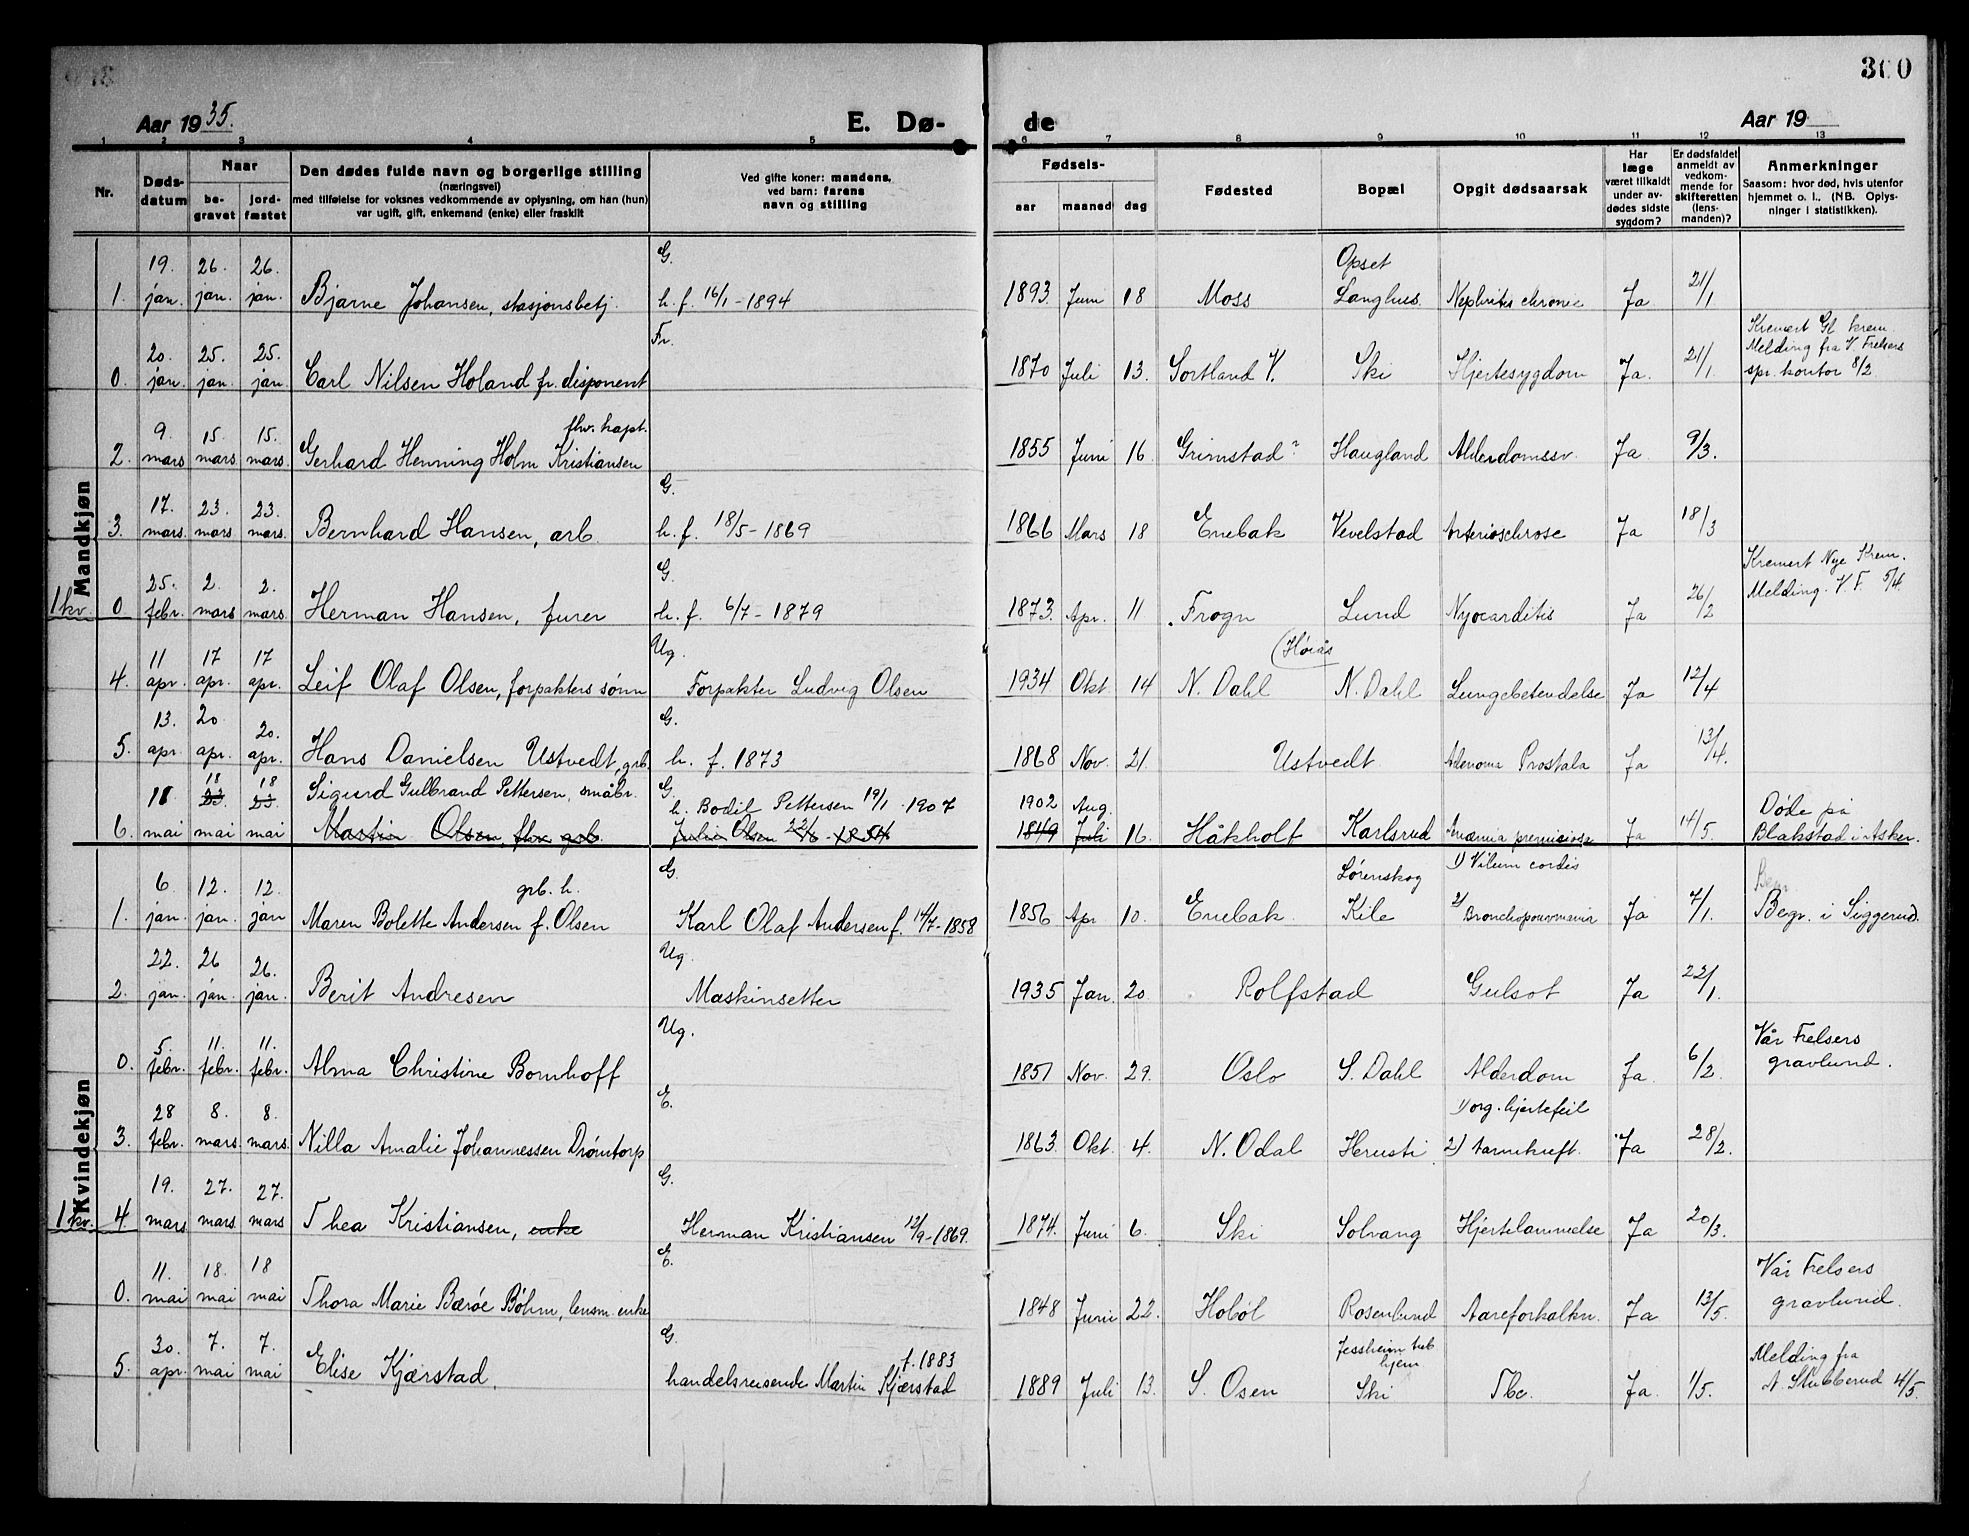 300
Aar 1935.
E. Dø-
de
Aar 19
1 2 3 4 5 6 7 8 9 10 11 12 13
Nr.
Døds-
datum
Naar
be-
gravet
jord-
fæstet
Den dødes fulde navn og borgerlige stilling
(næringsvei)
med tilføielse for voksnes vedkommende av oplysning, om han (hun)
var ugift, gift, enkemand (enke) eller fraskilt
Ved gifte koner: mandens,
ved barn: farens
navn og stilling
Fødsels-
aar maaned dag
Fødested
Bopæl
Opgit dødsaarsak
Har
læge
været tilkaldt
under av-
dødes sidste
sygdom?
Er dødsfaldet
anmeldt av
vedkom-
mende for
skifteretten
(lens-
manden)?
Anmerkninger
Saasom: hvor død, hvis utenfor
hjemmet o. l.. (NB. Oplys-
ninger i statistikken).
Mandkjøn
19. 26. 26. G. Opset
1. jan. jan. jan. Bjarne Johansen, stasjonsbetj. h. f. 16/1-1894 1893. Juni 18 Moss Langhus. Nephritis chronic Ja 21/1
20. 25. 25. Fr. Kremert Gl. krem.
0. jan. jan. jan. Carl Nilsen Holand fr. disponent 1870 Juli 13. Sortland V. Ski Hjertesygdom Ja. 21/1 Melding fra V. Frelsers
spr. kontor 8/2
9. 15. 15. fhv. kapt.
2. mars mars. mars. Gerhard Henning Holm Kristiansen 1855 Juni 16. Grimstad? Haugland Alderdomssv. Ja. 9/3.
17. 23. 23. G.
3. mars. mars. mars. Bernhard Hansen, arb. h. f. 18/5-1869 1866 Mars 18 Enebak Vevelstad Arteriosclrose Ja 18/3
25. 2. 2. G. Kremert Nye Krem.
1 kv. 0 febr. mars mars. Herman Hansen, furer h. f. 6/7-1879 1873. Apr. 11 Frogn Lund Myocarditis Ja 26/2 Melding. V. F. 5/4.
11 17 17 Ug. (Høiås
4. apr. apr. apr. Leif Olaf Olsen, forpakters sønn Forpakter Ludvig Olsen 1934 Okt. 14 N. Dahl N. Dahl Lungebetendelse Ja 12/4
13. 20. 20. G.
5. apr. apr. apr. Hans Danielsen Ustvedt, grb. h. f. 1873 1868 Nov. 21. Ustvedt Adenoma Prostata Ja 13/4.
18 18 Sigurd Gulbrand Pettersen, småbr. G. h. Bodil Pettersen 19/1 1907 1902 Aug. Døde på
6. mai mai mai Martin Olsen, fhv. grb. Julie Olsen 22/6-1854 1849 Juli 16. Håkholt Karlsrud Anæmia perniciosa Ja 14/5. Blakstad i Asker.
Kvindekjøn
6. 12. 12. grb. h. G. Lørenskog 1) Vitium cordis
1. jan. jan. jan Maren Bolette Andersen f. Olsen Karl Olaf Andersen f. 14/7-1858 1856 Apr 10. Enebak. Kile 2) Bronchopneumonia Ja 7/1. Begr. i Siggerud.
22. 26 26. Ug.
2. jan. jan. jan. Berit Andresen Maskinsetter 1935 Jan. 20 Rolfstad Gulsot Ja 22/1.
5. 11. 11. Ug. Vår Frelsers
0. febr. febr. febr. Alma Christine Bomhoff 1851 Nov. 29. Oslo S. Dahl Alderdom Ja. 6/2. gravlund.
28 8. 8. E. 1) org. hjertefeil
3. febr. mars. mars. Nilla Amalie Johannessen Drømtorp 1863. Okt. 4. N. Odal Herusti 2) tarmkreft. Ja 28/2.
19. 27. 27. G.
1 kv. 4. mars mars mars Thea Kristiansen, enke Herman Kristiansen 12/9-1869. 1874. Juni 6. Ski Solvang Hjertelammelse Ja 20/3.
11. 18. 18 E. Vår Frelsers
0. mai mai mai Thora Marie Bærøe Bøhm, lensm. enke 1848 Juni 22. Hobøl Rosenlund Aareforkalkn. Ja 13/5. gravlund.
30. 7. 7. G. f. 1883 Jessheim tub. hjem Melding fra
5. apr. mai mai Elise Kjærstad. handelsreisende Martin Kjærstad 1889 Juli 13. S. Osen Ski Tbc. Ja. 1/5. A. Stubberud 4/5.